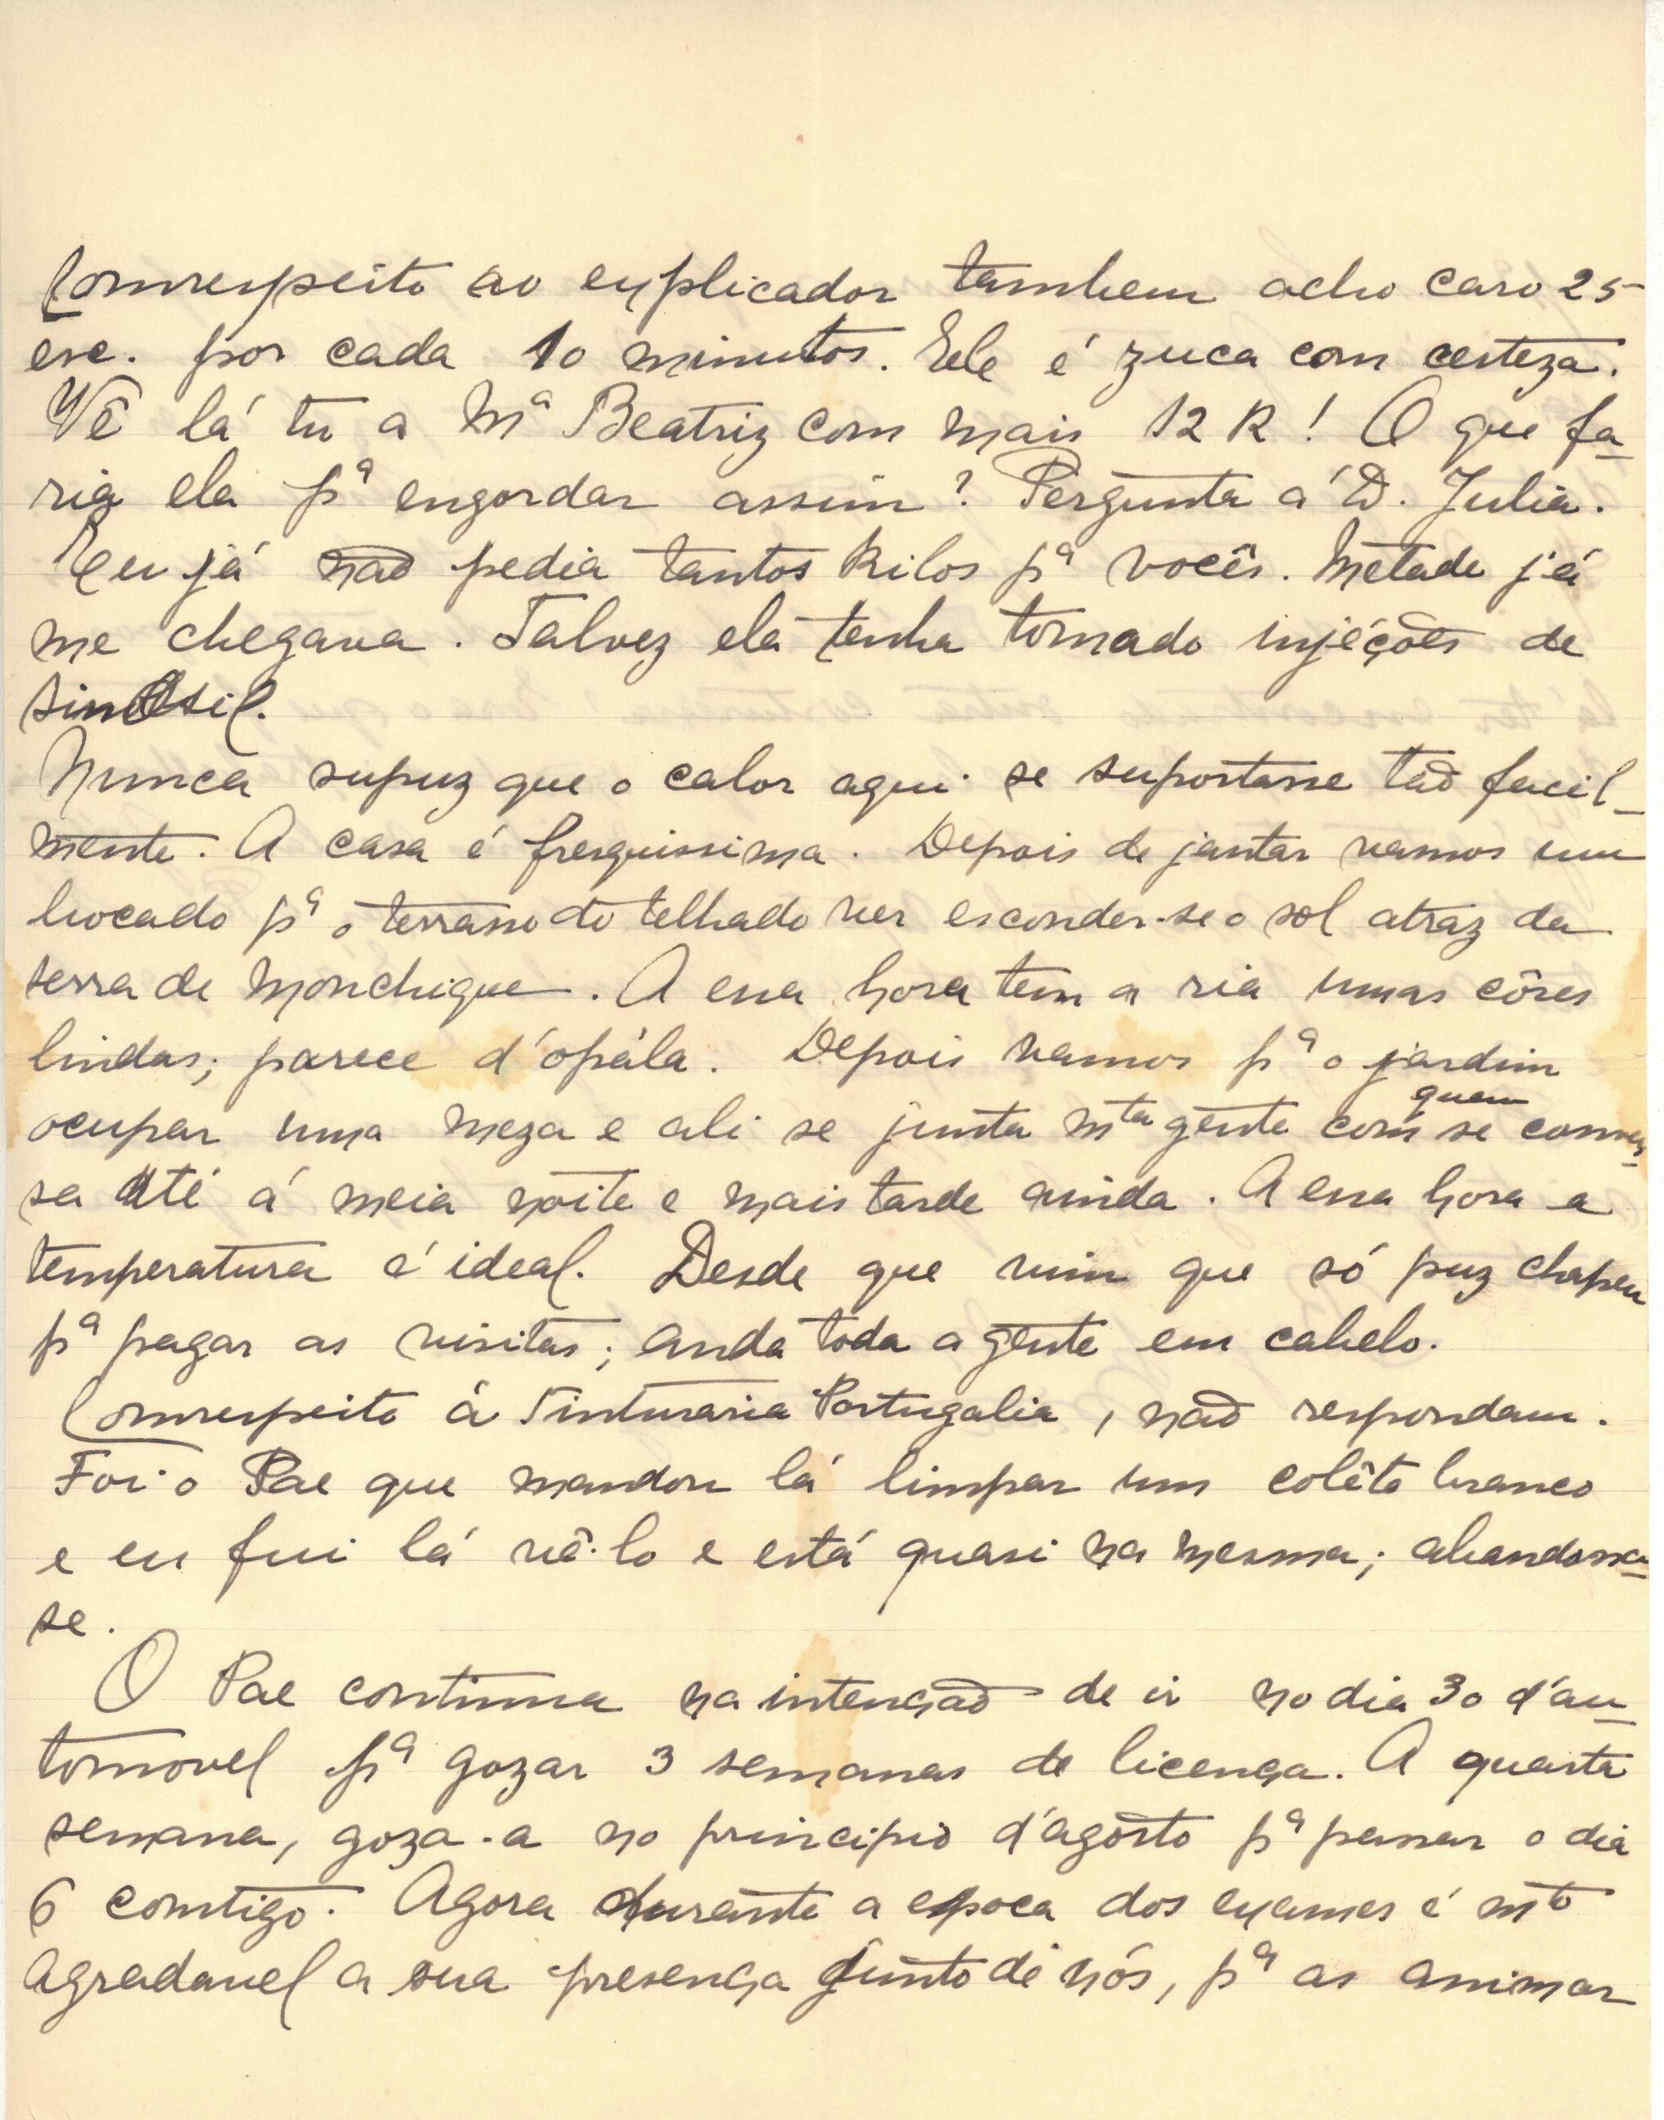 Comrespeito ao explicador tambem acho caro 25
esc. por cada 10 minutos. Ele é zuca com certeza.
Vê lá tu a Mª Beatriz com mais 12 K! O que fa-
ria ela pª engordar assim? Pergunta á D. Julia.
Eu já não pedia tantos kilos pª vocês. Metade já
me chegava. Talvez ela tenha tomado injéções de

Nunca supuz que o calor aqui se suportasse tão facil-
mente. A casa é fresquissima. Depois de jantar vamos um
bocado pª o terrasso do telhado ver esconder-se o sol atraz da
serra de Monchique. A essa hora tem a ria umas côres
lindas; parece d'opála. Depois vamos pª o jardim
ocupar uma meza e ali se junta mta gente com quem se conver-
sa até á meia noite e mais tarde ainda. A essa hora a
temperatura é ideal. Desde que vim que só puz chapeu
pª pagar as visitas; anda toda a gente em cabelo.
Comrespeito á Tinturaria Portugalia, não respondam.
Foi o Pae que mandou lá limpar um colête branco
e eu fui lá vê-lo e está quasi na mesma; abandona-
se.
O Pae continua na intenção de ir no dia 30 d'au-
tomovel pª gozar 3 semanas de licença. A quarta
semana, goza-a no principio d'agosto pª passar o dia
6 comtigo. Agora durante a epoca dos exames é mto
agradavel a sua presença junto de nós, pª as animar